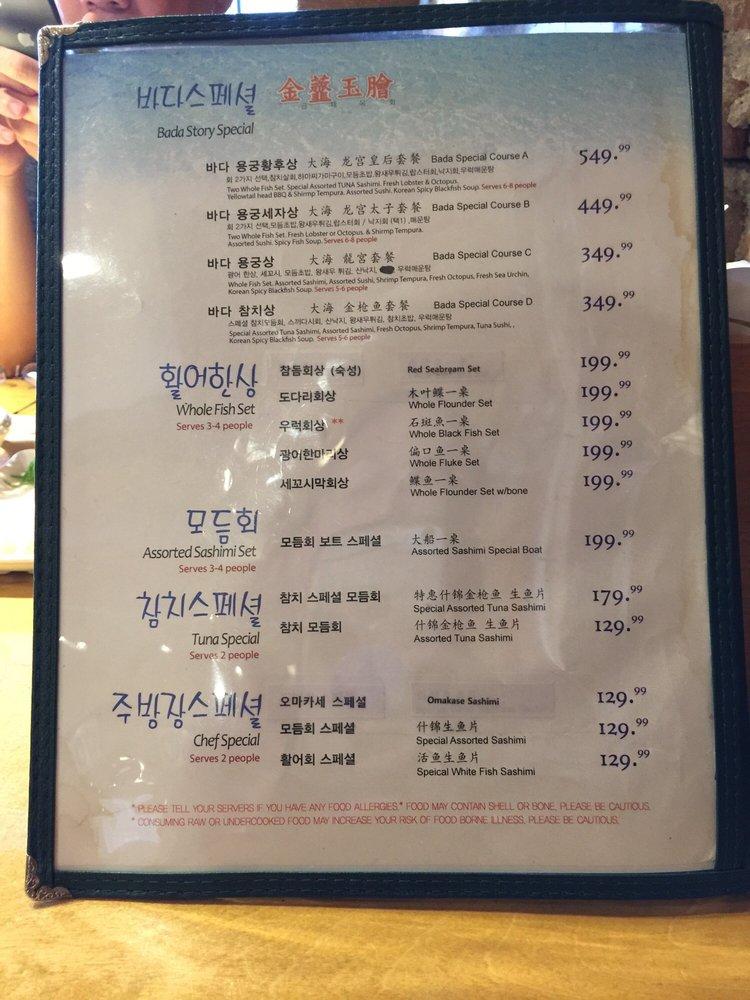 바다스페셜 金虀玉膾
금 제 옥 회
Bada Story Special
바다 용궁황후상 大海 龙宫皇后套餐 Bada Special Course A 549.99
회 2가지 선택,참치실회,하마찌가마구이,모듬초밥,왕새우튀김,랍스터회,낙지회,우럭매운탕
Two Whole Fish Set. Special Assorted TUNA Sashimi. Fresh Lobster & Octopus.
Yellowtail head BBQ & Shrimp Tempura. Assorted Sushi. Korean Spicy Blackfish Soup. Serves 6-8 people
바다 용궁세자상 大海 龙宫太子套餐 Bada Special Course B 449.99
회 2가지 선택,모듬초밥,왕새우튀김,랍스터회 / 낙지회 (택1) ,매운탕
Two Whole Fish Set. Fresh Lobster or Octopus. & Shirmp Tempura.
Assorted Sushi. Spicy Fish Soup. Serves 6-8 people
바다 용궁상 大海 龍宮套餐 Bada Special Course C 349.99
광어 한상, 세꼬시, 모듬초밥, 왕새우 튀김, 산낙지, 우럭매운탕
Whole Fish Set. Assorted Sashimi, Assorted Sushi, Shrimp Tempura, Fresh Octopus, Fresh Sea Urchin,
Korean Spicy Blackfish Soup. Serves 5-6 people
바다 참치상 大海 金枪鱼套餐 Bada Special Course D 349.99
스페셜 참치모듬회, 스끼다시회, 산낙지, 왕새우튀김, 참치초밥, 우럭매운탕
Special Assorted Tuna Sashimi, Assorted Sashimi, Fresh Octopus, Shrimp Tempura, Tuna Sushi, ,
Korean Spicy Blackfish Soup. Serves 5-6 people
활어한상
Whole Fish Set
Serves 3-4 people
참돔회상 (숙성) Red Seabream Set 199.99
도다리회상 木叶鲽一桌 199.99
Whole Flounder Set
우럭회상 ** 石斑魚一桌 199.99
Whole Black Fish Set
광어한마리상 偏口鱼一桌 199.99
Whole Fluke Set
세꼬시막회상 鲽鱼一桌 199.99
Whole Flounder Set w/bone
모듬회
Assorted Sashimi Set
Serves 3-4 people
모듬회 보트 스페셜 大船一桌 199.99
Assorted Sashimi Special Boat
참치스페셜
Tuna Special
Serves 2 people
참치 스페셜 모듬회 特惠什锦金枪鱼 生鱼片 179.99
Special Assorted Tuna Sashimi
참치 모듬회 什锦金枪鱼 生鱼片 129.99
Assorted Tuna Sashimi
주방장스페셜
Chef Special
Serves 2 people
오마카세 스페셜 Omakase Sashimi 129.99
모듬회 스페셜 什锦生鱼片 129.99
Special Assorted Sashimi
활어회 스페셜 活鱼生鱼片 129.99
Speical White Fish Sashimi
* PLEASE TELL YOUR SERVERS IF YOU HAVE ANY FOOD ALLERGIES.* FOOD MAY CONTAIN SHELL OR BONE, PLEASE BE CAUTIOUS.
* CONSUMING RAW OR UNDERCOOKED FOOD MAY INCREASE YOUR RISK OF FOOD BORNE ILLNESS, PLEASE BE CAUTIOUS.